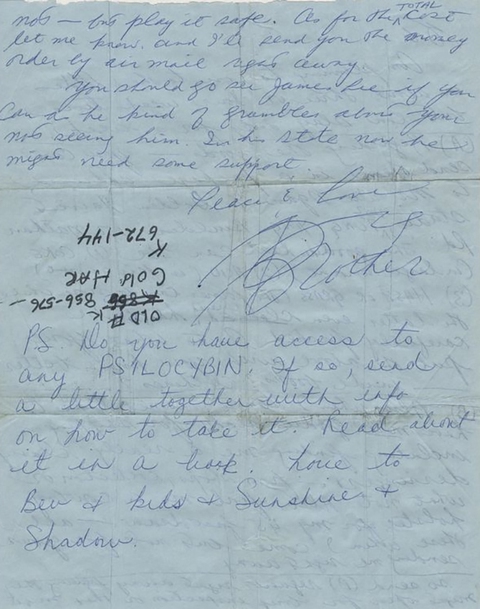 not — but play it safe. As for the TOTAL cost
let me know and I'll send you the money
order by air mail right away.
You should go see James Lee if you
can as he kind of grumbles about your
not seeing him. In his state now he
might need some support
Peace & Love
Brother
OLD # K
856-576-
Gold HAR
K 672-144
PS Do you have access to
any PSILOCYBIN. If so, send
a little together with info
on how to take it. Read about
it in a book. Love to
Bev & kids & Sunshine &
Shadow.